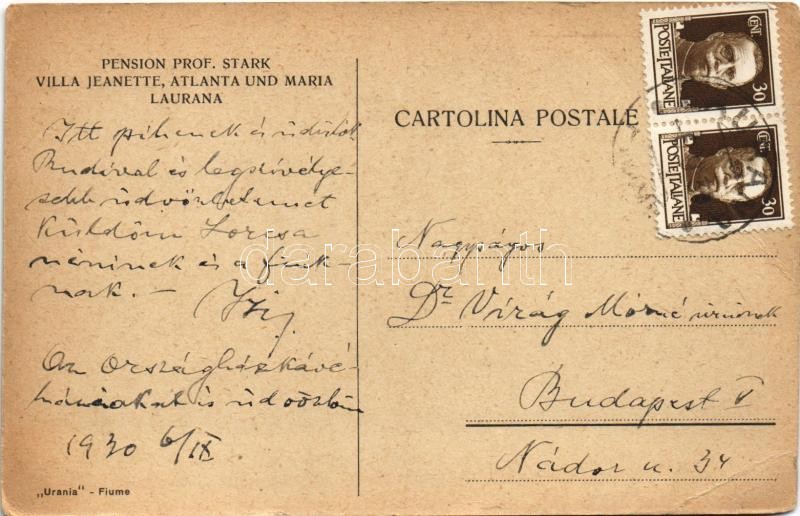 PENSION PROF. STARK
VILLA JEANETTE, ATLANTA UND MARIA
LAURANA
Itt pihenek és üdülök
Budával és legszívélye-
sebb üdvözletemet
küldöm Lorcsa
néninek és a fiuk-
nak. –
Az Országházkávé-
is üdvözlöm
1930 6/IX
„Urania" - Fiume
CARTOLINA POSTALE
Nagyságos
Dr Virág Mórné úrnőnek
Budapest V
Nádor u. 34
CENT. 30
POSTE ITALIANE
CENT. 30
POSTE ITALIANE
darabanth